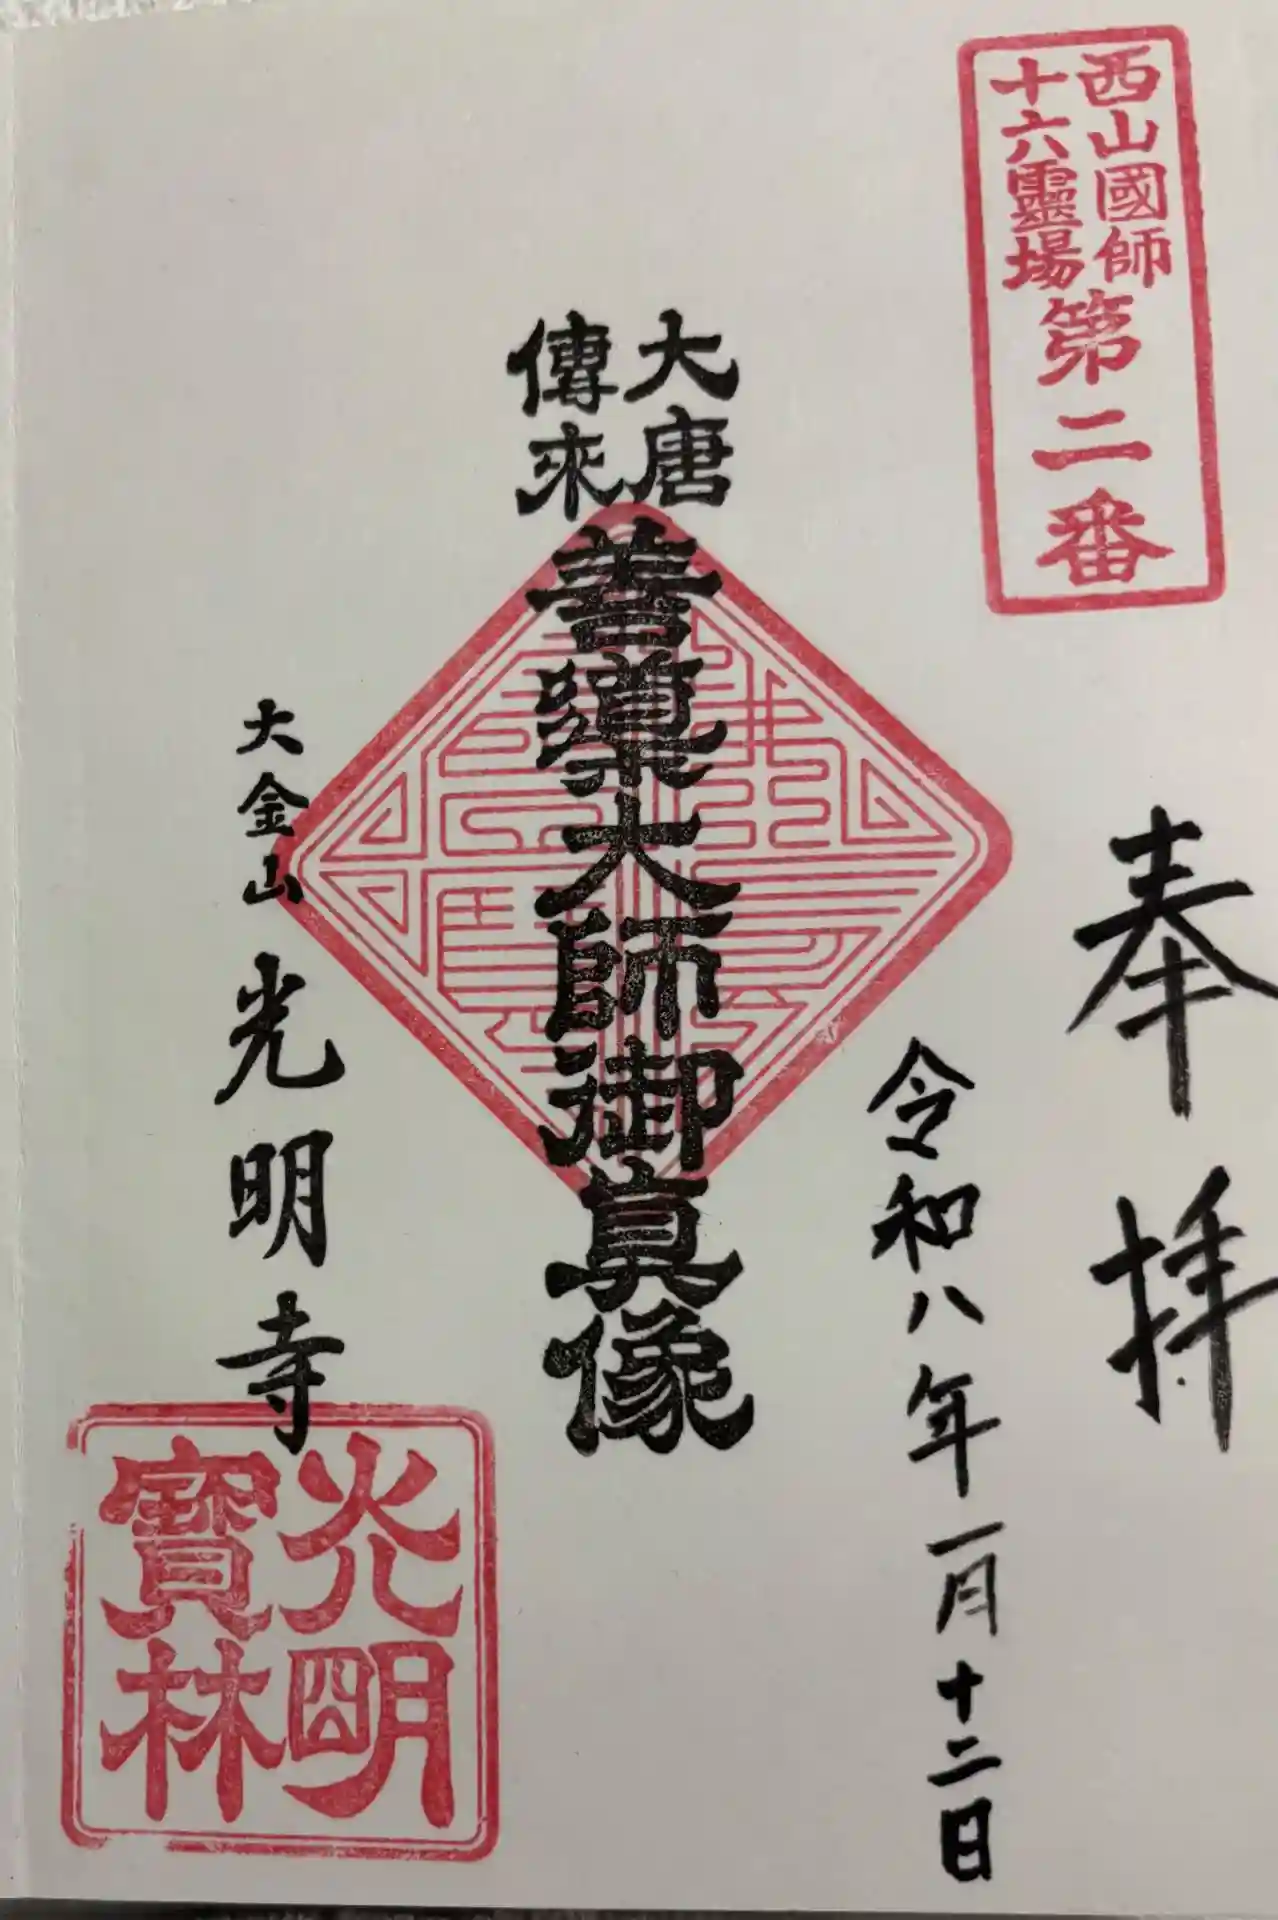 西山國師
十六靈場
第二番
奉拝
令和八年一月十二日
大唐
傳來
善導大師御真像
大金山
光明寺
光明
寶林